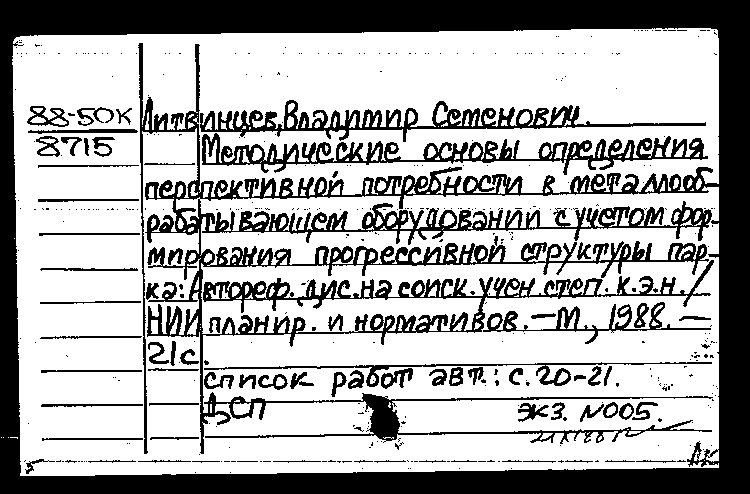 88-50К Литвинцев, Владимир Семенович.
8715 Методические основы определения
перспективной потребности в металлооб-
рабатывающем оборудовании с учетом фор-
мирования прогрессивной структуры пар-
ка: Автореф. дис. на соиск. учен. степ. к.э.н. /
НИИ планир. и нормативов. — М., 1988. —
21 с.
список работ авт.: с. 20-21.
ДСП экз. №005.